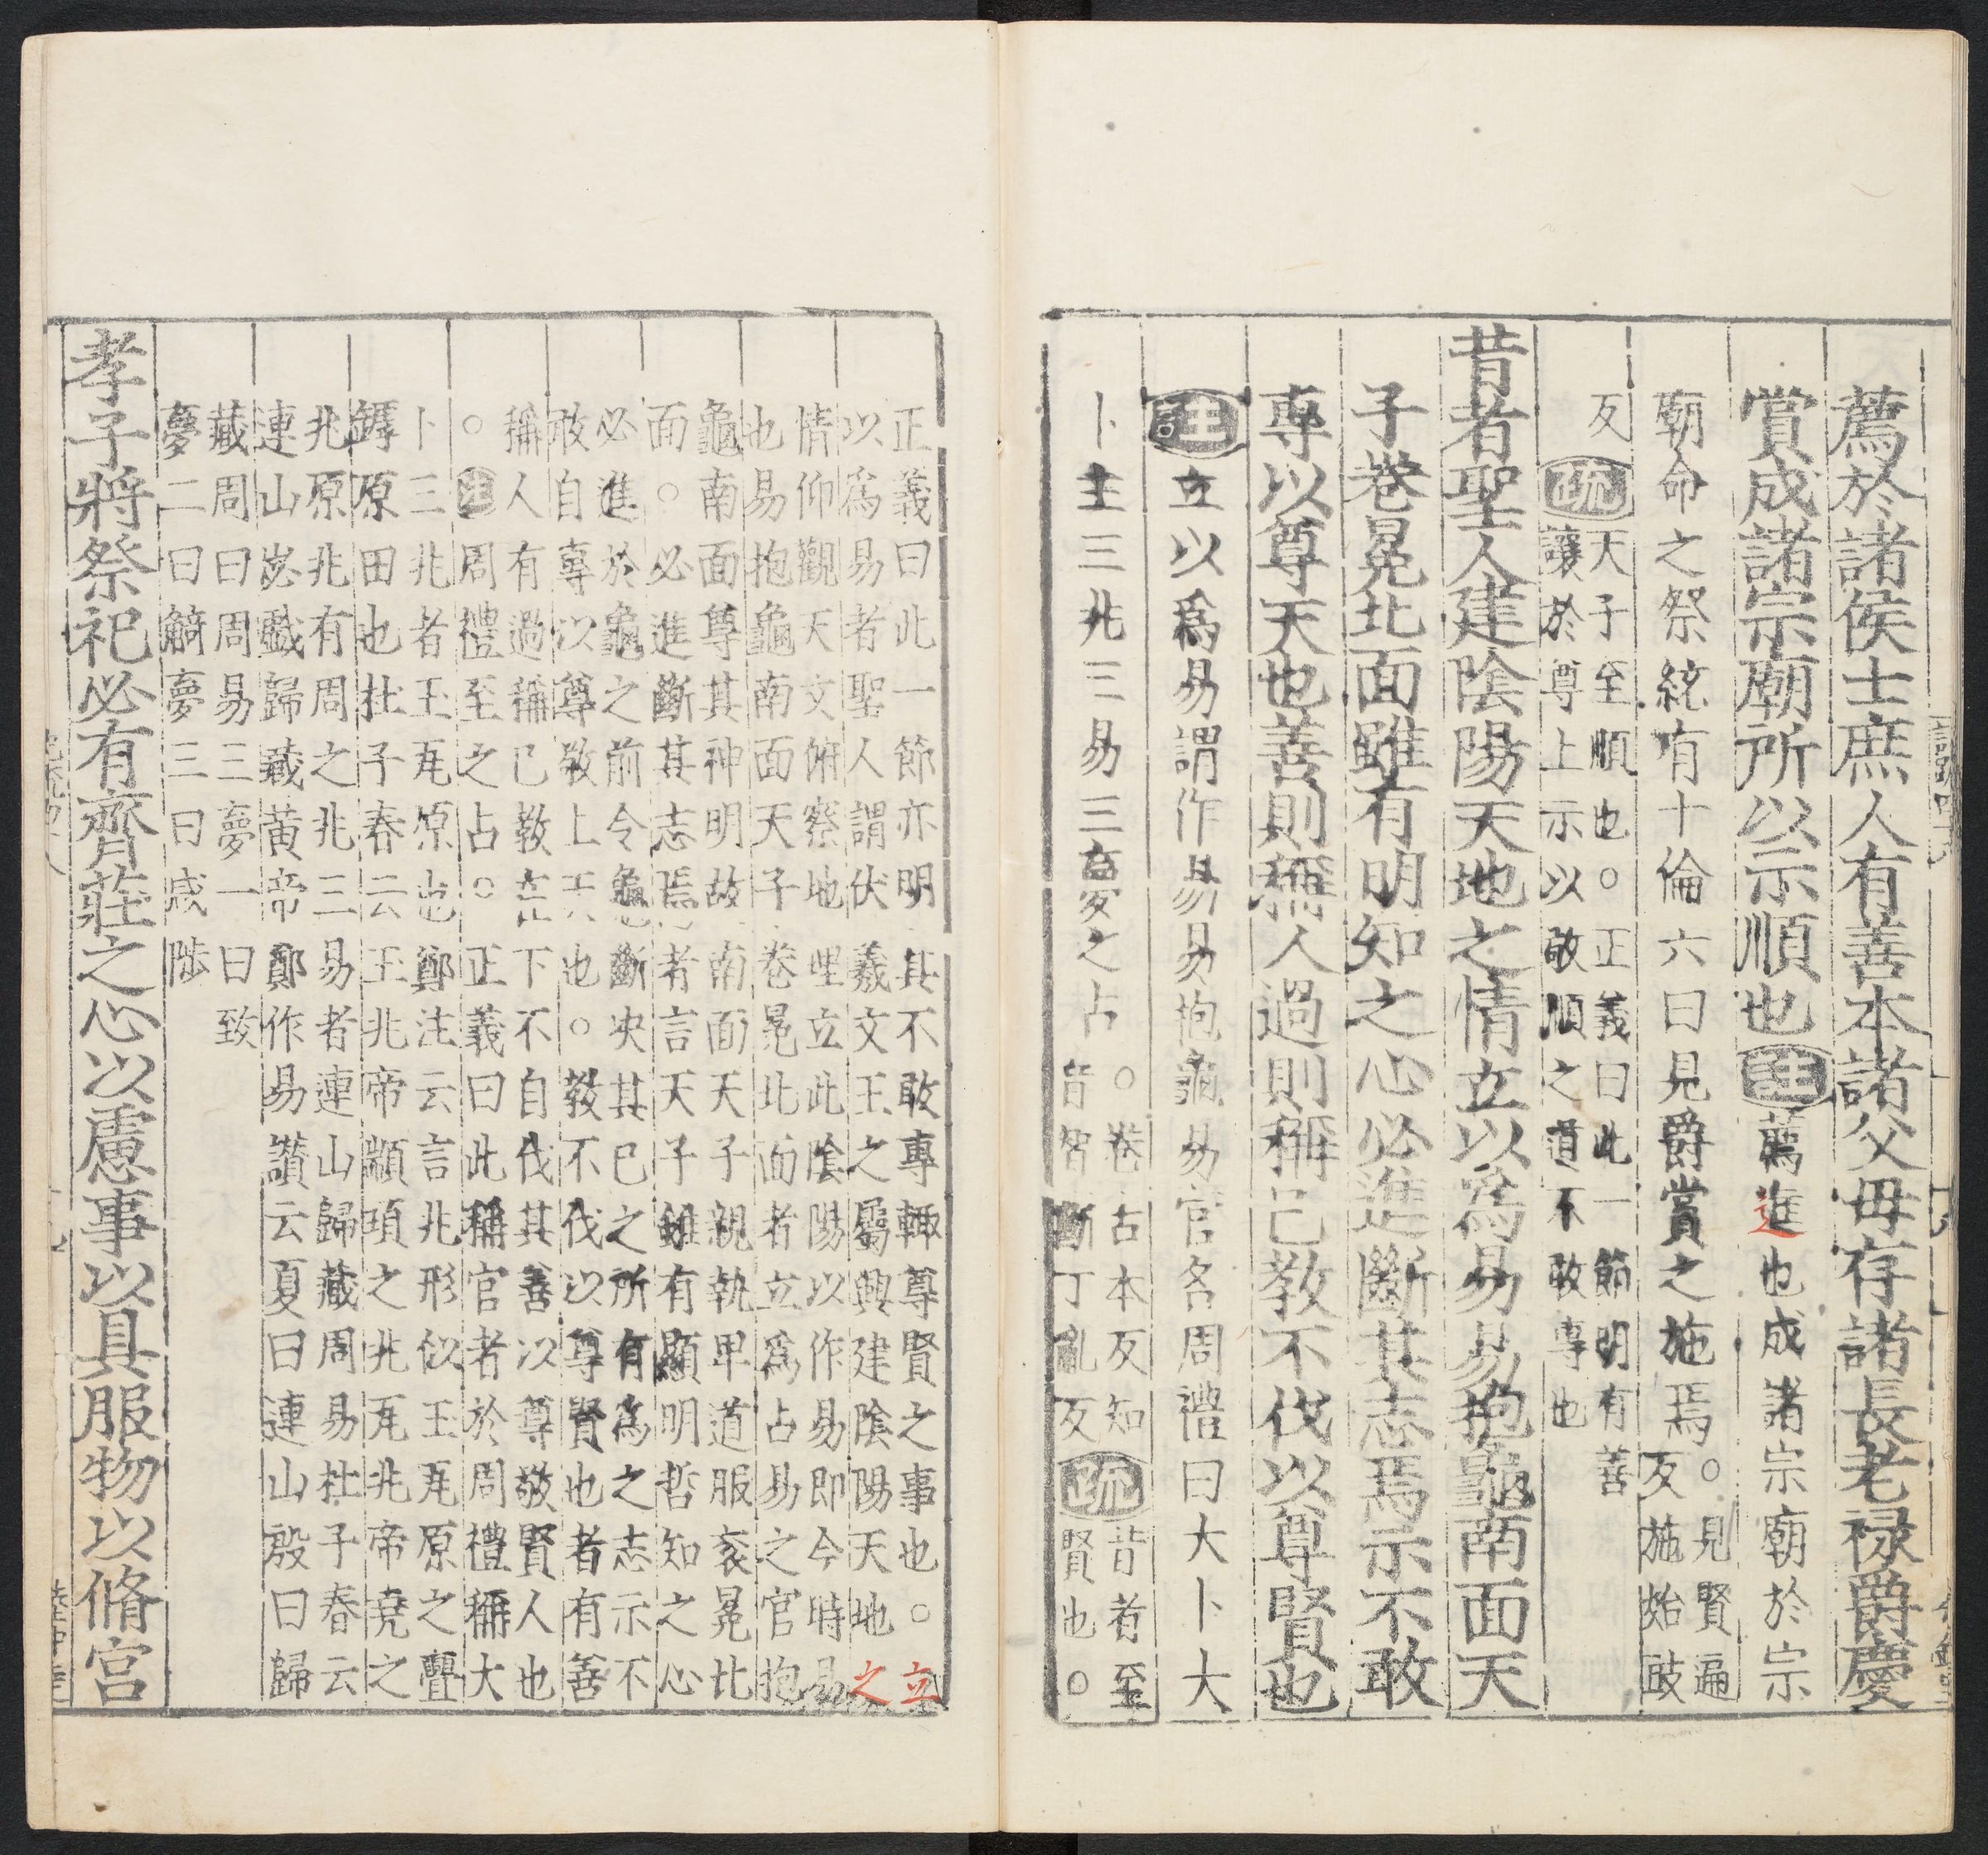 薦於諸侯士庶人有善本諸父母存諸長老祿爵慶
賞成諸宗廟所以示順也註薦進也成諸宗廟於宗
廟命之祭統有十倫六曰見爵賞之施焉○見賢遍
反施始豉
反疏天子至順也○正義曰此一節明有善
讓於尊上示以敬順之道不敢專也
昔者聖人建陰陽天地之情立以爲易易抱龜南面天
子卷冕北面雖有明知之心必進斷其志焉示不敢
專以尊天也善則稱人過則稱己教不伐以尊賢也
註立以爲易謂作易易抱龜易官名周禮曰大卜大
卜主三兆三易三夢之占○卷古本反知
音智斷丁亂反疏昔者至
賢也○
正義曰此一節亦明其不敢專輒尊賢之事也○立
以爲易者聖人謂伏羲文王之屬興建陰陽天地之
情仰觀天文俯察地理立此陰陽以作易即今時易
也易抱龜南面天子卷冕北面者立爲占易之官抱
龜南面尊其神明故南面天子親執卑道服袞冕北
面○必進斷其志焉者言天子雖有顯明哲知之心
必進於龜之前令龜斷決其己之所有爲之志示不
敢自專以尊敬上天也○教不伐以尊賢也者有善
稱人有過稱己教在下不自伐其善以尊敬賢人也
○註周禮至之占○正義曰此稱官者於周禮稱大
卜三兆者玉瓦原也鄭注云言兆形似玉瓦原之舋
罅原原田也杜子春云玉兆帝顓頊之兆瓦兆帝堯之
兆原兆有周之兆三易者連山歸藏周易杜子春云
連山宓戲歸藏黃帝鄭作易讃云夏曰連山殷曰歸
藏周曰周易三夢一曰致
夢二曰觭夢三曰咸陟
孝子將祭祀必有齊莊之心以慮事以具服物以脩宮